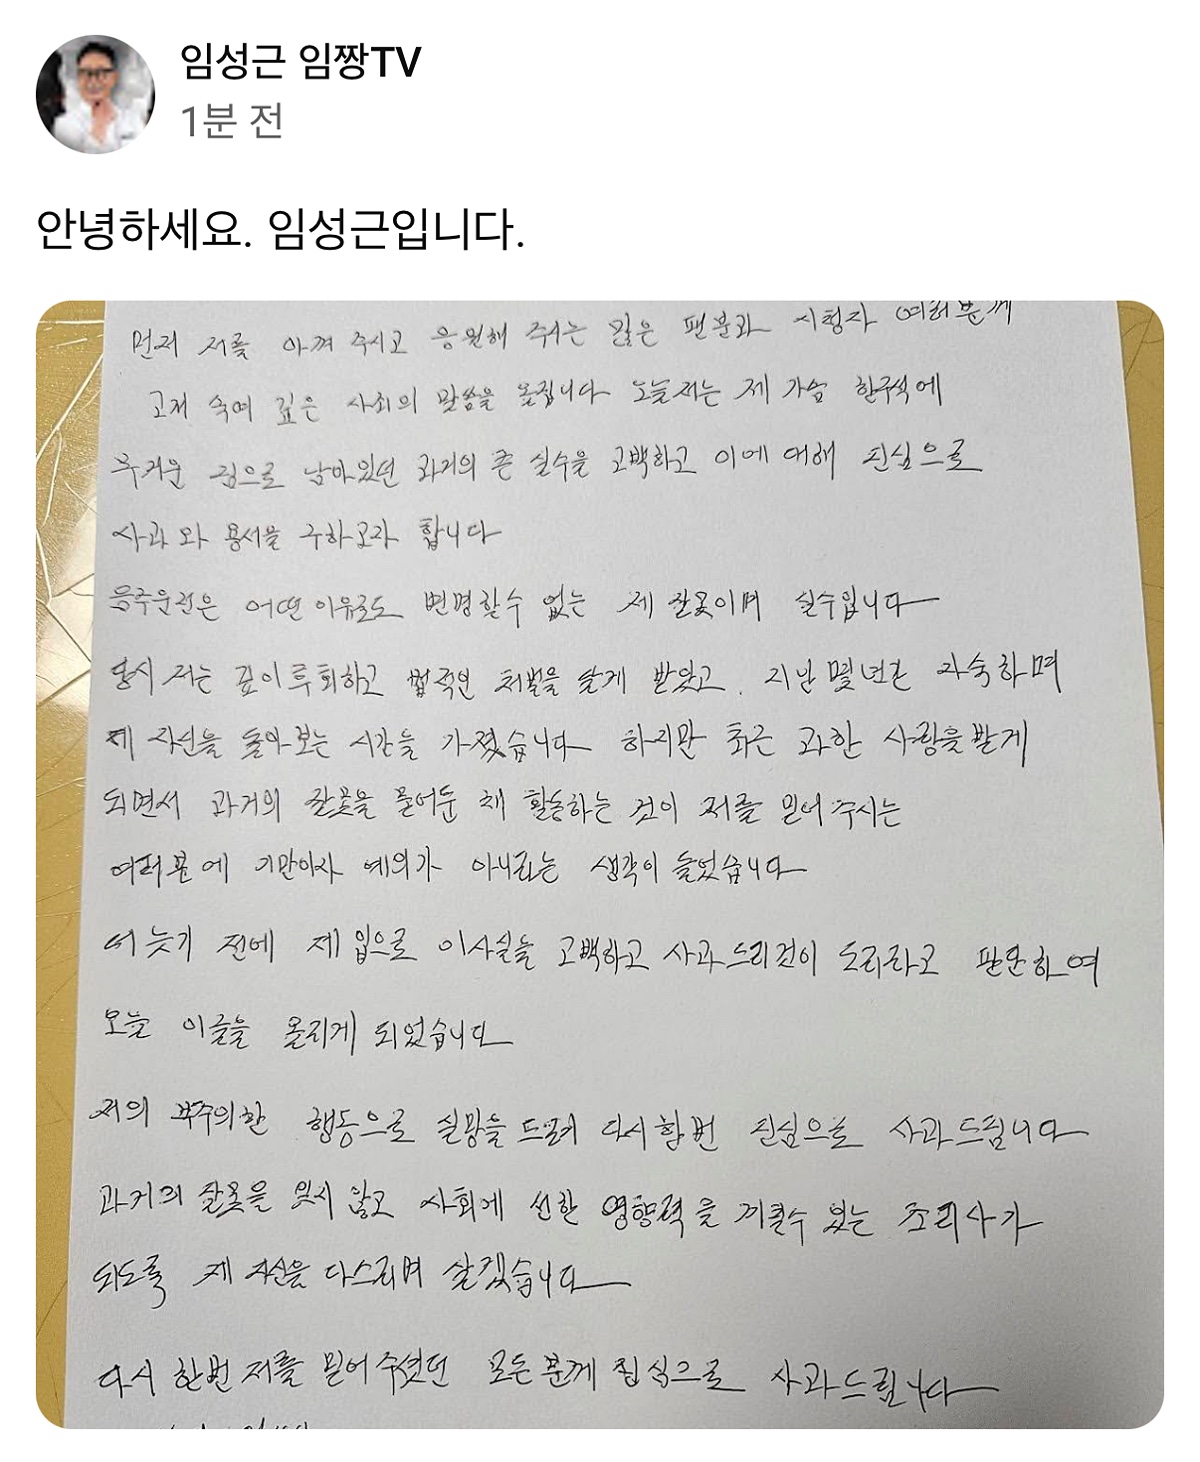 임성근 임짱TV
1분 전
안녕하세요. 임성근입니다.
먼저 저를 아껴 주시고 응원해 주시는 많은 팬분과 시청자 여러분께
고개 숙여 깊은 사죄의 말씀을 올립니다 오늘 저는 제 가슴 한구석에
무거운 짐으로 남아있던 과거의 큰 실수을 고백하고 이에 대해 진심으로
사과와 용서를 구하고자 합니다
음주운전은 어떤 이유로도 변명할수 없는 제 잘못이며 실수입니다
당시 저는 깊이 후회하고 법적인 처벌을 달게 받았고, 지난 몇년간 자숙하며
제 자신을 돌아보는 시간을 가졌습니다 하지만 최근 과한 사랑을 받게
되면서 과거의 잘못을 묻어둔 채 활동하는 것이 저를 믿어 주시는
여러분에 기만이자 예의가 아니라는 생각이 들었습니다
더 늦기 전에 제 입으로 이사실을 고백하고 사과드리것이 도리라고 판단하여
오늘 이글을 올리게 되었습니다
저의 부주의한 행동으로 실망을 드려 다시한번 진심으로 사과드립니다
과거의 잘못을 잊지 않고 사회에 선한 영향력을 끼칠수 있는 조리사가
되도록 제 자신을 다스리며 살겠습니다
다시 한번 저를 믿어 주셨던 모든분께 진심으로 사과드립니다